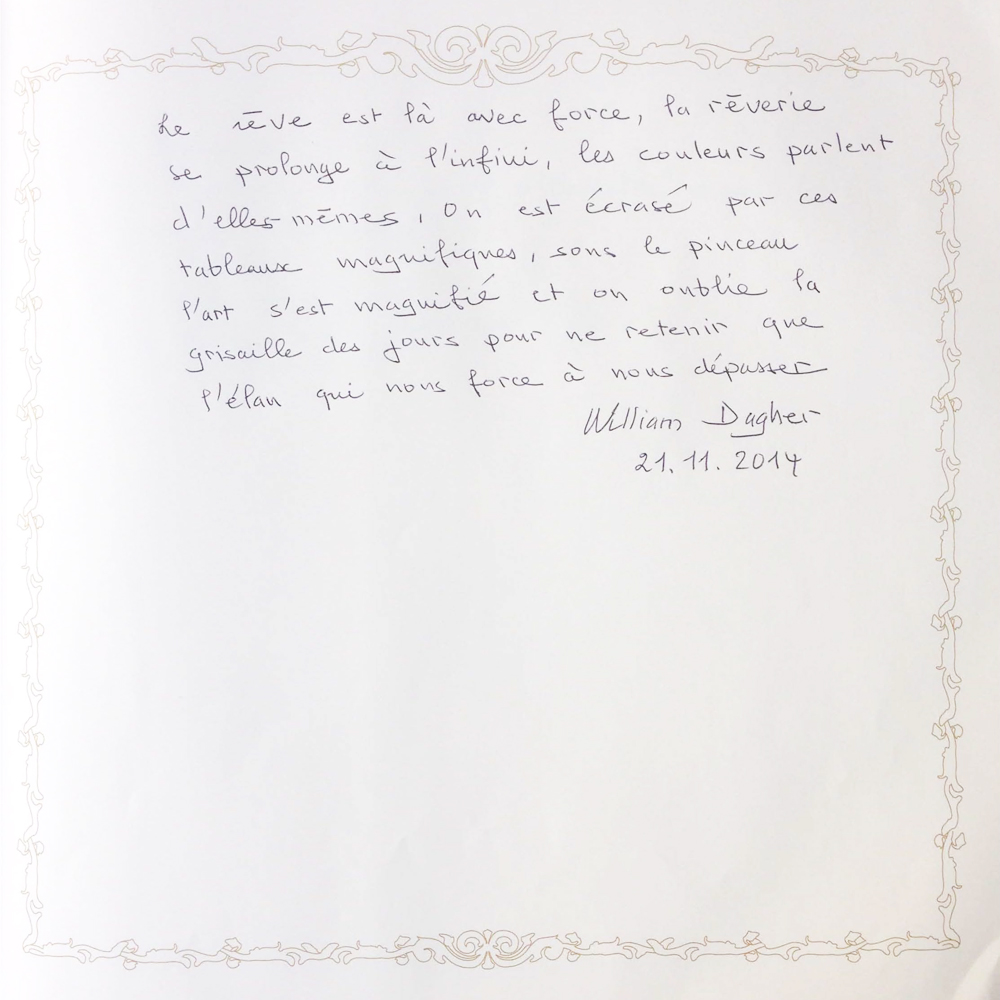 Le rêve est là avec force, la rêverie
se prolonge à l'infini, les couleurs parlent
d'elles-mêmes, On est écrasé par ces
tableaux magnifiques, sous le pinceau
l'art s'est magnifié et on oublie la
grisaille des jours pour ne retenir que
l'élan qui nous force à nous dépasser
William Dagher
21.11.2014